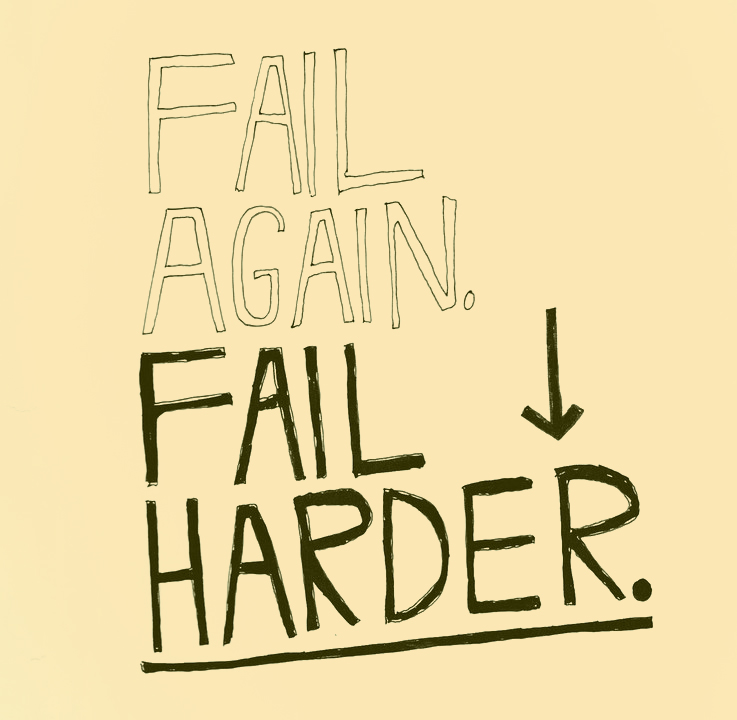 FAIL
AGAIN.
FAIL
HARDER.